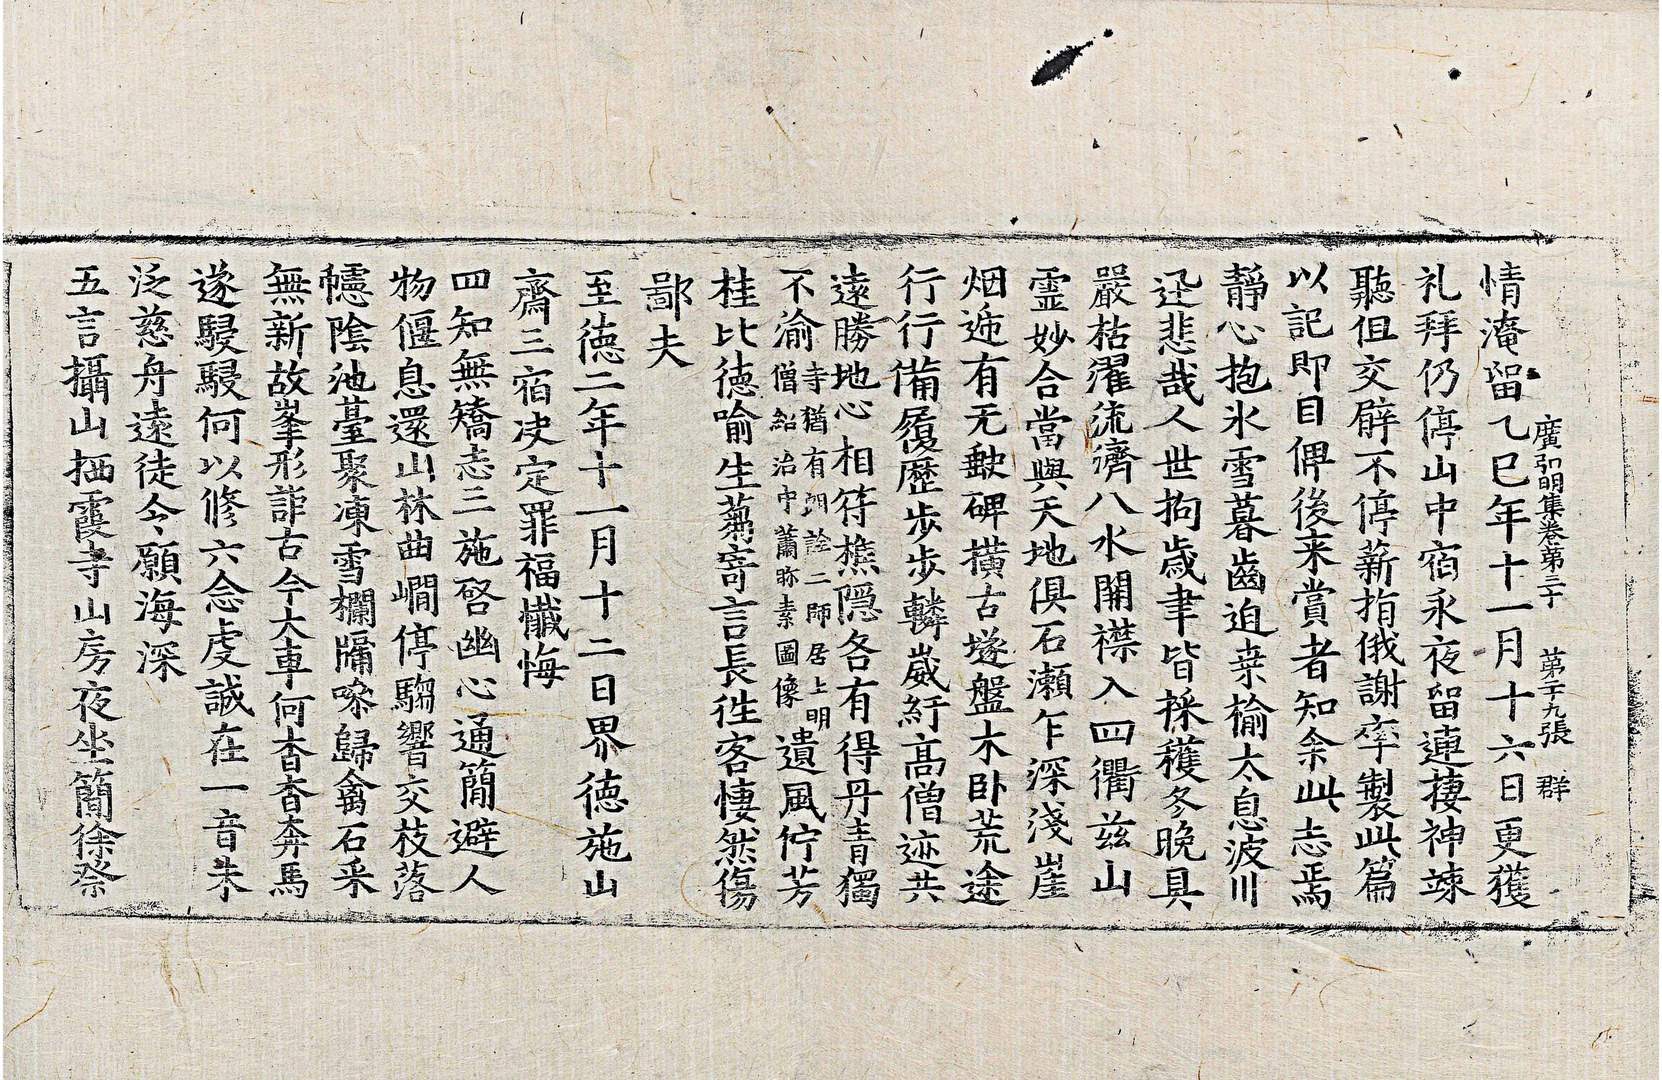 廣弘明集卷第三十　第二十九張　群
情淹留乙巳年十一月十六日更獲
礼拜仍停山中宿永夜留連棲神竦
聽但交臂不停薪指俄謝率製此篇
以記即目俾後来賞者知余此志焉
靜心抱氷雪暮齒迫桒榆太息波川
迅悲哉人世拘歲聿皆採穫冬晚具
嚴枯濯流濟八水開襟入四衢茲山
霊妙合當與天地俱石瀬乍深淺崖
烟遞有无歔碑橫古墜盤木卧荒途
行行備履歷步步轔威紆高僧迹共
遠勝地心相符樵隱各有得丹青獨
不渝寺猶有朗詮二師居上明僧紹治中蕭眎素圖像遺風佇芳
桂比徳喻生蒭寄言長徃客悽然傷
鄙夫
至徳二年十一月十二日昇徳施山
齋三宿決定罪福懺悔
四知無矯志三施啓幽心通簡避人
物偃息還山林曲㵎停騶響交枝落
幰陰池臺聚凍雪欄牖噪歸禽石彩
無新故峯形詎古今大車何杳杳奔馬
遂駸駸何以修六念虔誠在一音未
泛慈舟遠徒令願海深
五言攝山栖霞寺山房夜坐簡徐祭